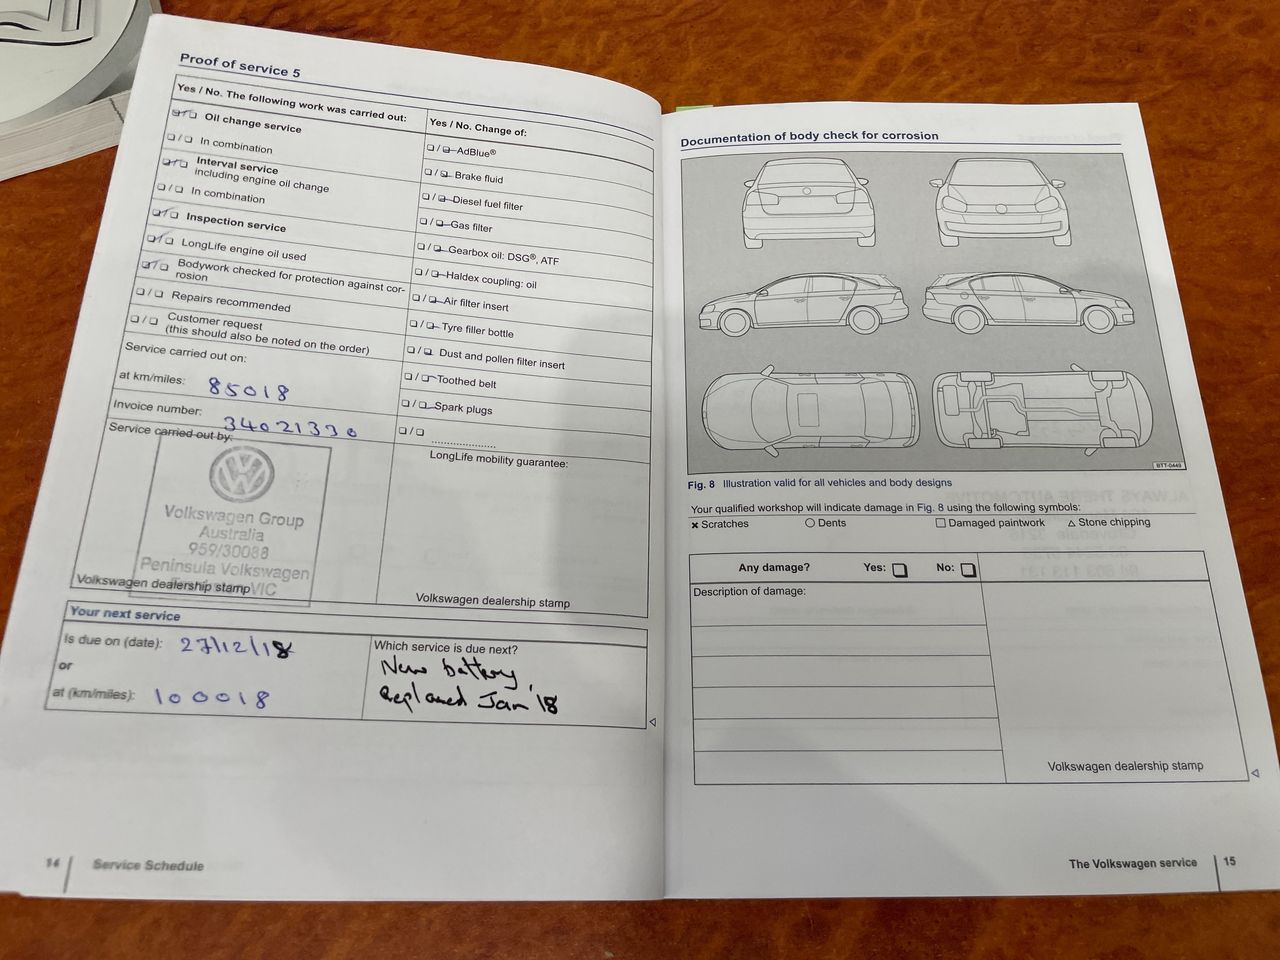 Proof of service 5
Yes / No. The following work was carried out:
Oil change service
In combination
Interval service
including engine oil change
In combination
Inspection service
LongLife engine oil used
Bodywork checked for protection against cor-
rosion
Repairs recommended
Customer request
(this should also be noted on the order)
Service carried out on:
at km/miles: 85018
Invoice number: 34021330
Service carried out by:
Volkswagen Group
Australia
959/30088
Peninsula Volkswagen
VIC
Volkswagen dealership stamp
Yes / No. Change of:
AdBlue®
Brake fluid
Diesel fuel filter
Gas filter
Gearbox oil: DSG®, ATF
Haldex coupling: oil
Air filter insert
Tyre filler bottle
Dust and pollen filter insert
Toothed belt
Spark plugs
LongLife mobility guarantee:
Volkswagen dealership stamp
Your next service
Is due on (date): 27/12/18
or
at (km/miles): 100018
Which service is due next?
New battery
Replaced Jan '18
14 Service Schedule
Documentation of body check for corrosion
BTT-0449
Fig. 8 Illustration valid for all vehicles and body designs
Your qualified workshop will indicate damage in Fig. 8 using the following symbols:
× Scratches ○ Dents □ Damaged paintwork △ Stone chipping
Any damage? Yes: No:
Description of damage:
Volkswagen dealership stamp
The Volkswagen service 15